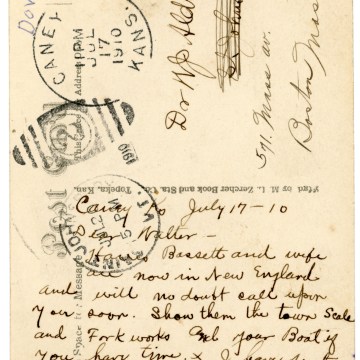 CANEY
KANS.
JUL
17
1910
Dr W J Ald
571 Mass av.
Boston Mass
This side for Address
Space for Message
Pub'd by M. L. Zercher Book and Sta. Co. Topeka, Kan.
Caney Ks July 17-10
Dear Walter-
Bassett and wife
are now in New England
and will no doubt call upon
you soon. Show them the town Scale
and Fork works and your Boat if
you have time.